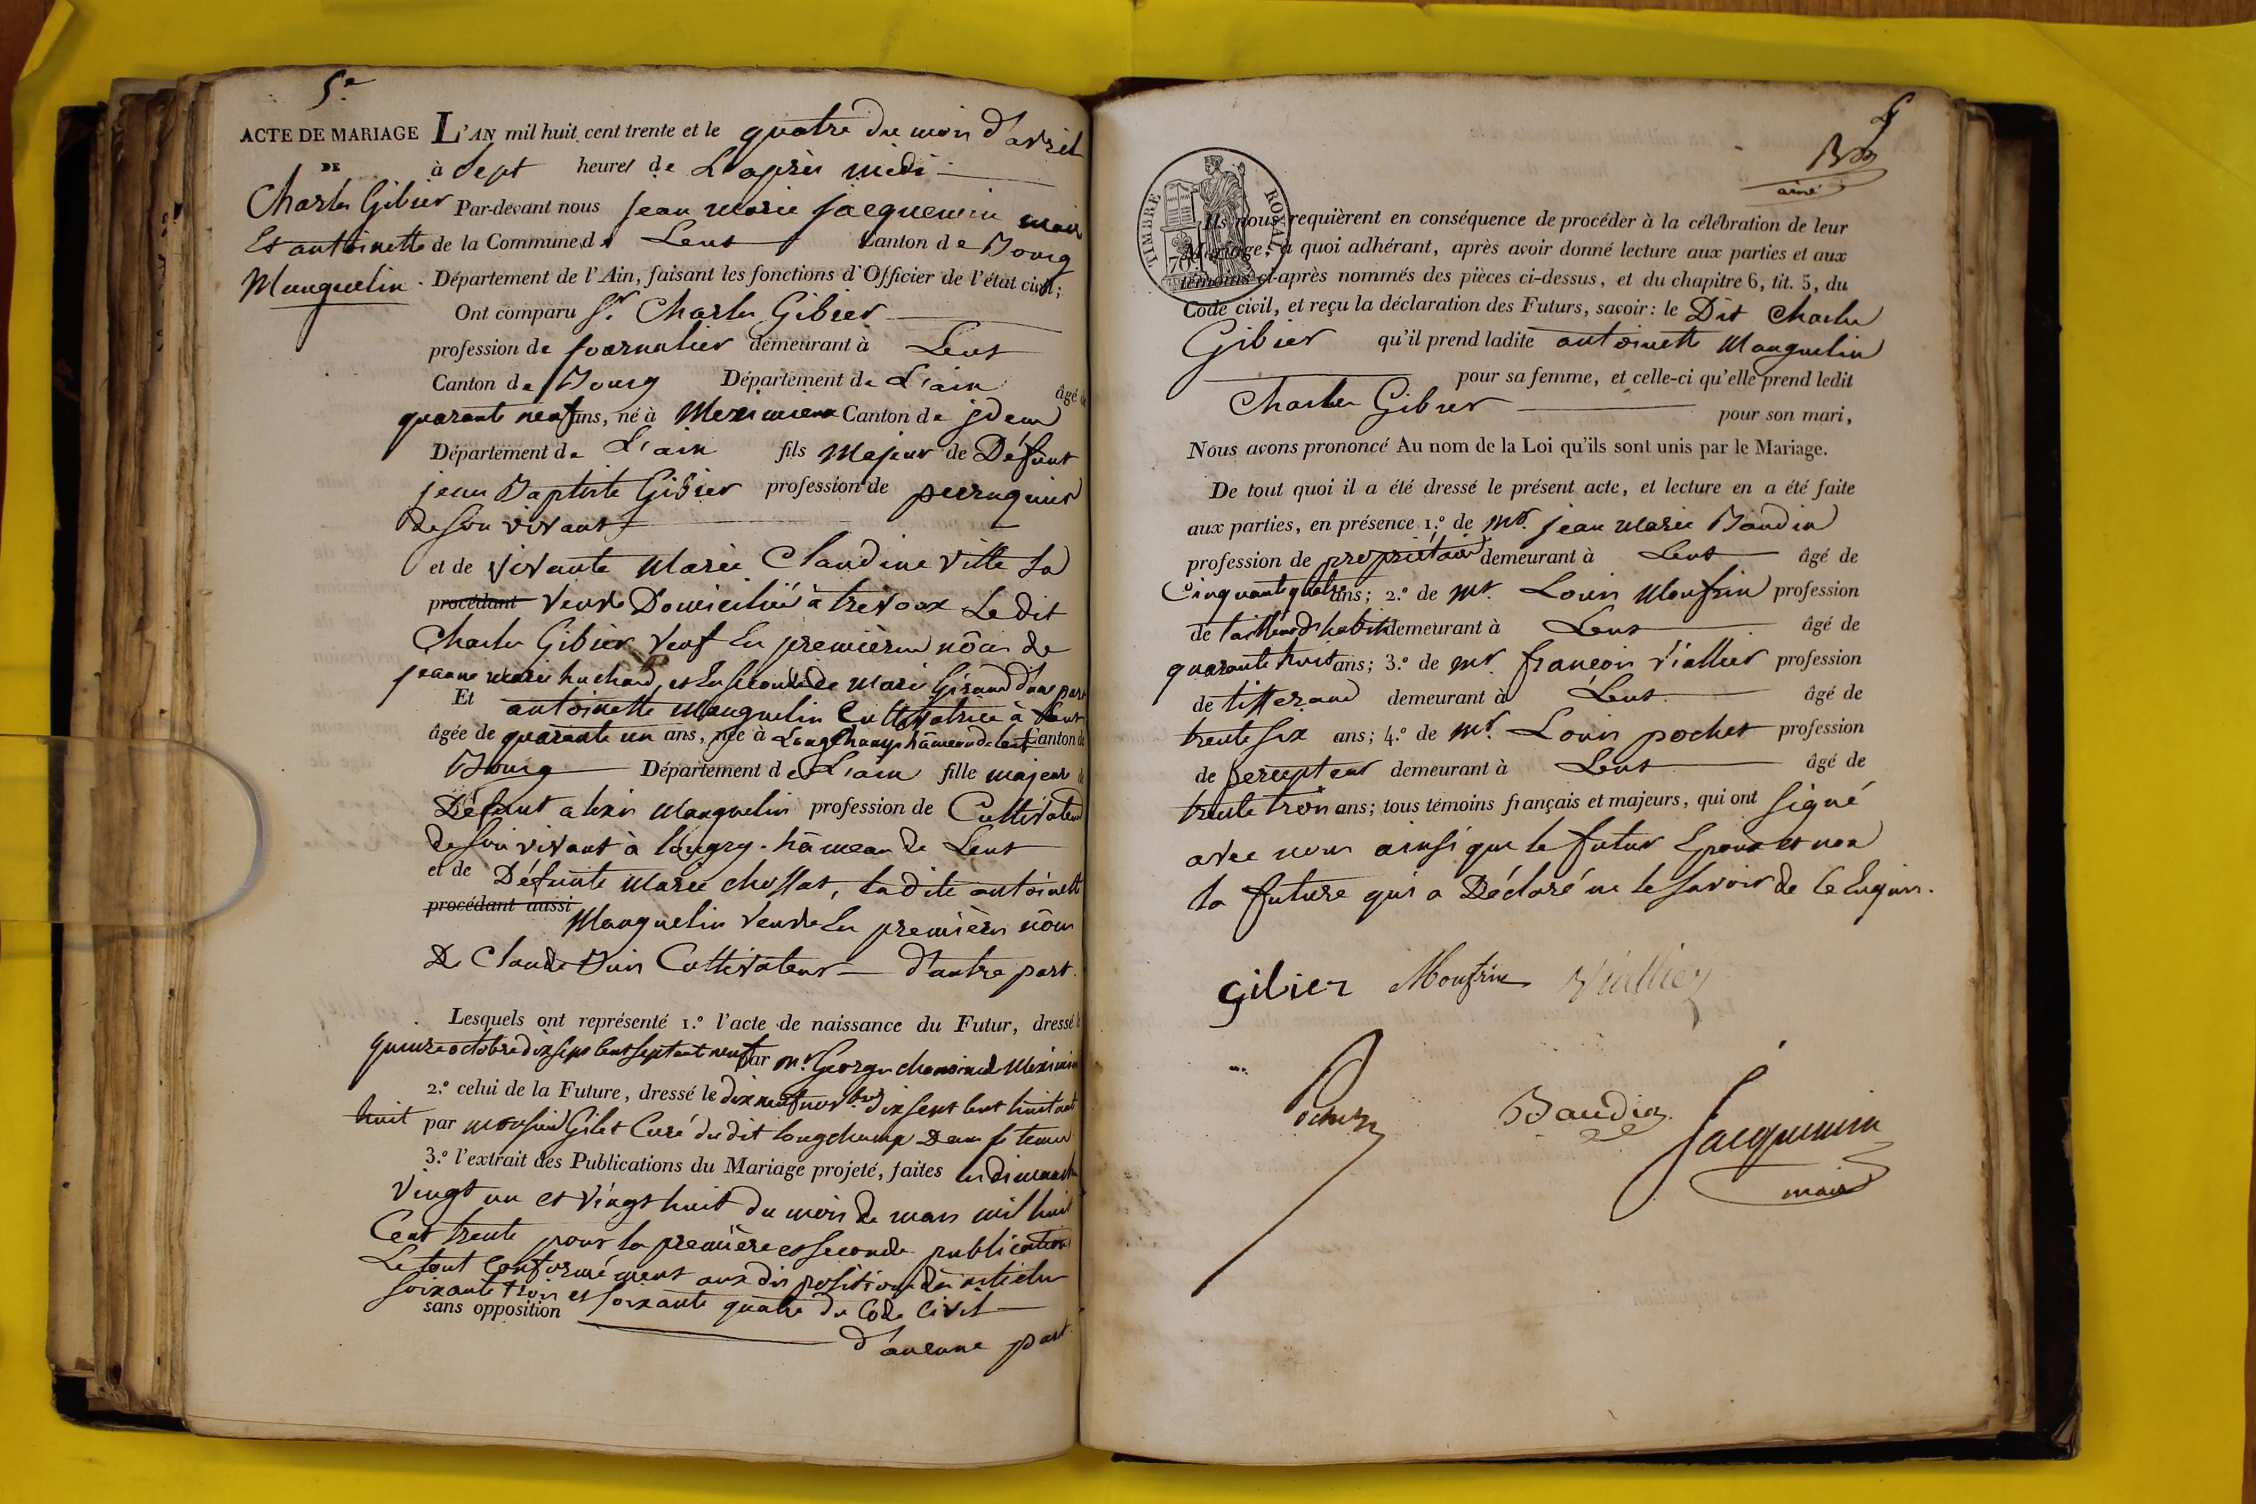 5.e
ACTE DE MARIAGE
DE
Charles Gibier
Et antoinette
Manguelin.
L'AN mil huit cent trente et le quatre du mois d'avril
à Sept heures de L'après midi
Par-devant nous jean marie jacquemin maire
de la Commune de Lent Canton de Bourg
Département de l'Ain, faisant les fonctions d'Officier de l'état civil;
Ont comparu Sr. Charles Gibier
profession de journalier demeurant à Lent
Canton de Bourg Département de L'ain âgé de
quarante neuf ans, né à Meximieux Canton de jdem
Département de L'ain fils Majeur de Défunt
jean Baptiste Gibier profession de perruquier
de son vivant
et de vivante Marie Claudine Ville sa
procédant veuve Domiciliée à trevoux Le dit
Charles Gibier veuf En premières nôces de
jeanne marie huchard, et En secondes de marie Giraud d'une part
Et antoinette Manguelin Cultivatrice à Lent
âgée de quarante un ans, née à Longchamp hâmeau de Lent Canton de
Bourg Département de L'ain fille majeure de
Défunt alexis Manguelin profession de Cultivateur
de son vivant à longry hâmeau de Lent
et de Défunte Marie chossat, ladite antoinette
procédant aussi
Manguelin veuve En premières nôces
De Claude Buis Cultivateur d'autre part.
Lesquels ont représenté 1.º l'acte de naissance du Futur, dressé le
quinze octobre dix sept cent septante neuf par Mr. George chanoine de Meximieux
2.º celui de la Future, dressé le dix neuf novbre dix sept cent huitante
huit par monsieur Gilet Curé du dit longchamp
3.º l'extrait des Publications du Mariage projeté, faites les dimanches
vingt un et vingt huit du mois de mars mil huit
Cent trente pour la première et seconde publication
Le tout Conformément aux dispositions des articles
soixante trois et soixante quatre du Code Civil
sans opposition
d'aucune part.
TIMBRE ROYAL
70
Ils nous requièrent en conséquence de procéder à la célébration de leur
Mariage; à quoi adhérant, après avoir donné lecture aux parties et aux
témoins ci-après nommés des pièces ci-dessus, et du chapitre 6, tit. 5, du
Code civil, et reçu la déclaration des Futurs, savoir: le Dit Charles
Gibier qu'il prend ladite antoinette Manguelin
pour sa femme, et celle-ci qu'elle prend ledit
Charles Gibier pour son mari,
Nous avons prononcé Au nom de la Loi qu'ils sont unis par le Mariage.
De tout quoi il a été dressé le présent acte, et lecture en a été faite
aux parties, en présence 1.º de Mr. jean marie Baudin
profession de propriétaire demeurant à Lent âgé de
Cinquante quatre ans; 2.º de Mr. Louis Monfrin profession
de tailleur d'habits demeurant à Lent âgé de
quarante huit ans; 3.º de Mr françois Viallier profession
de tisserand demeurant à Lent âgé de
trente six ans; 4.º de Mr. Louis pochet profession
de percepteur demeurant à Lent âgé de
trente trois ans; tous témoins français et majeurs, qui ont signé
avec nous ainsi que le futur Epoux et non
la future qui a Déclaré ne le savoir de ce Enquis.
Gibier Monfrin Viallier
Pochet Baudin Jacquemin
maire